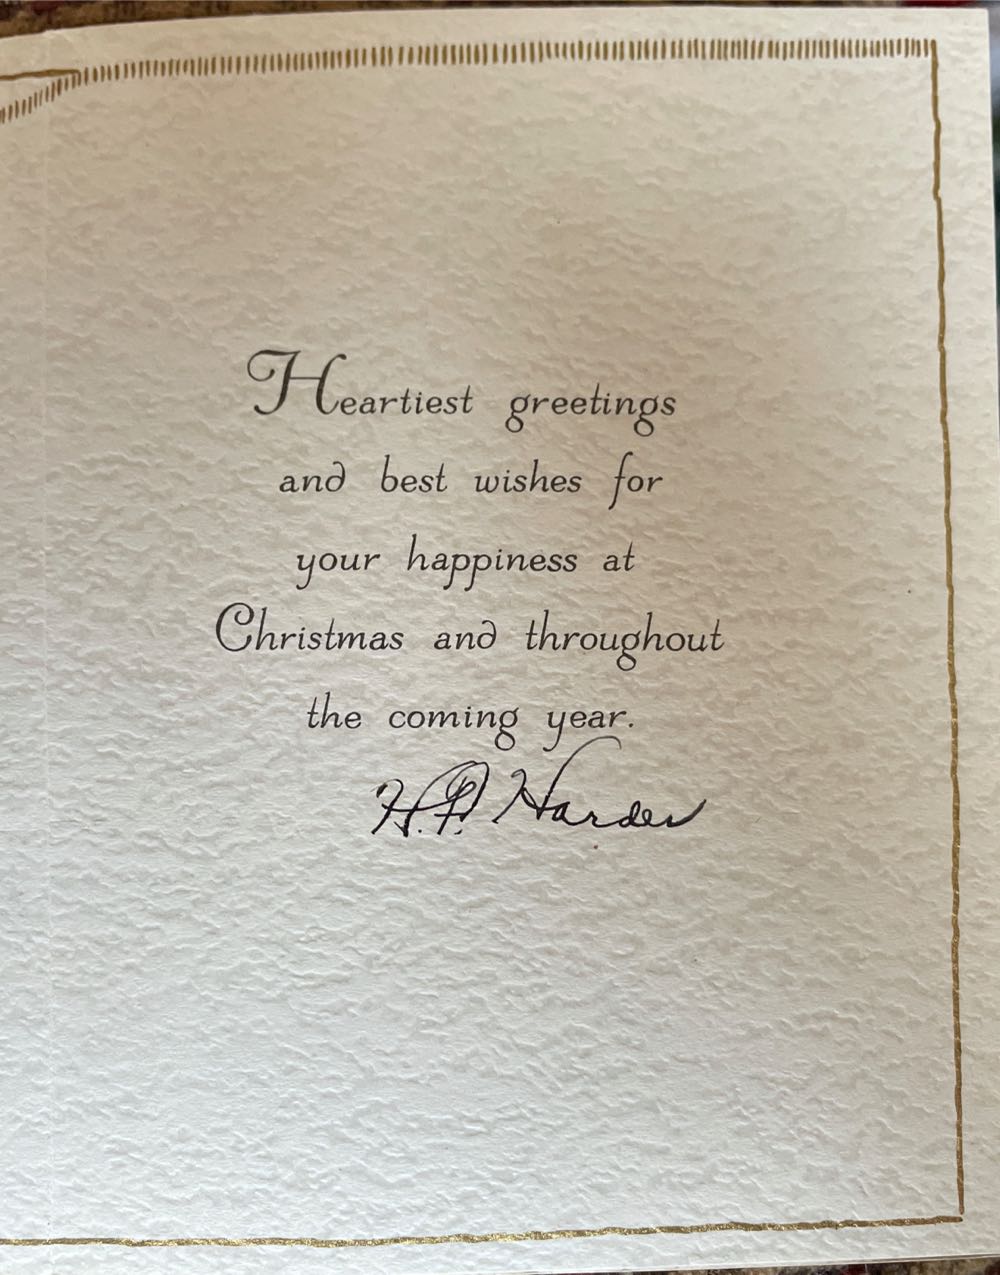 Heartiest greetings
and best wishes for
your happiness at
Christmas and throughout
the coming year.
H. P. Harder